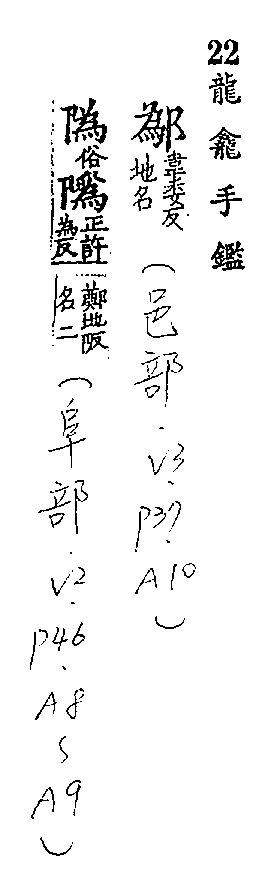 22 龍龕手鑑
鄬 韋委反 地名 (邑部.V3.P37.A10)
隖 俗 䧦 正 許為反 鄭地阪名 二 (阜部.V2.P46.A8~A9)